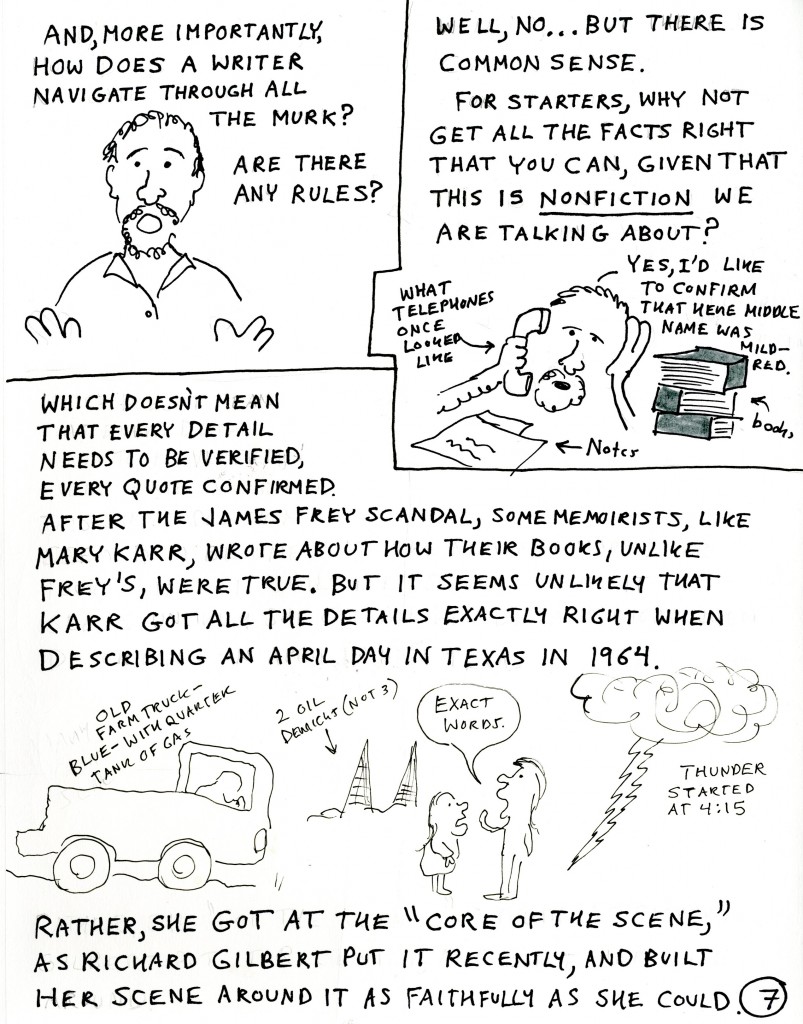 AND, MORE IMPORTANTLY,
HOW DOES A WRITER
NAVIGATE THROUGH ALL
THE MURK?
ARE THERE
ANY RULES?
WELL, NO... BUT THERE IS
COMMON SENSE.
FOR STARTERS, WHY NOT
GET ALL THE FACTS RIGHT
THAT YOU CAN, GIVEN THAT
THIS IS NONFICTION WE
ARE TALKING ABOUT?
WHAT
TELEPHONES
ONCE
LOOKED
LIKE
YES, I'D LIKE
TO CONFIRM
THAT HER MIDDLE
NAME WAS
MILD-
RED.
books
Notes
WHICH DOESN'T MEAN
THAT EVERY DETAIL
NEEDS TO BE VERIFIED,
EVERY QUOTE CONFIRMED.
AFTER THE JAMES FREY SCANDAL, SOME MEMOIRISTS, LIKE
MARY KARR, WROTE ABOUT HOW THEIR BOOKS, UNLIKE
FREY'S, WERE TRUE. BUT IT SEEMS UNLIKELY THAT
KARR GOT ALL THE DETAILS EXACTLY RIGHT WHEN
DESCRIBING AN APRIL DAY IN TEXAS IN 1964.
OLD
FARM TRUCK-
BLUE-WITH QUARTER
TANK OF GAS
2 OIL
DERRICKS (NOT 3)
EXACT
WORDS.
THUNDER
STARTED
AT 4:15
RATHER, SHE GOT AT THE "CORE OF THE SCENE,"
AS RICHARD GILBERT PUT IT RECENTLY, AND BUILT
HER SCENE AROUND IT AS FAITHFULLY AS SHE COULD.
7